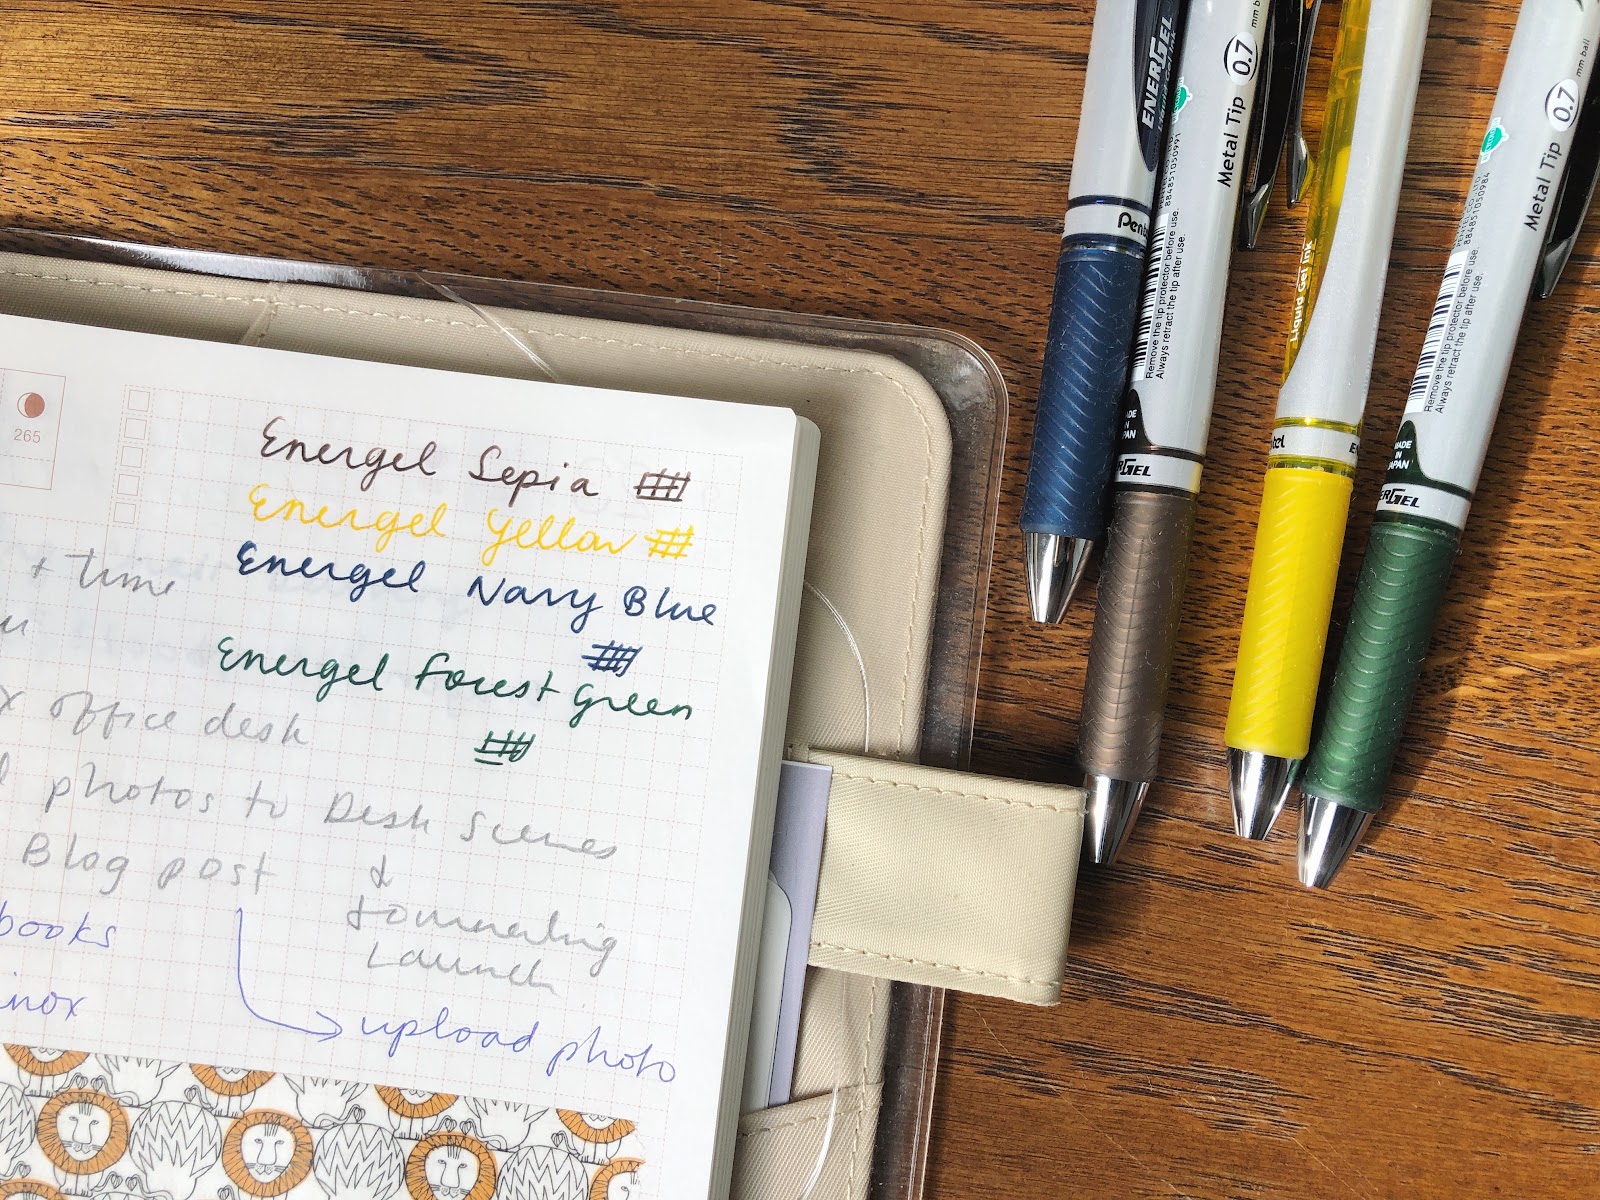 265
Energel Sepia
Energel Yellow
Energel Navy Blue
+ time
Energel Forest Green
office desk
photos to Desk Scenes
Blog post
&
Journaling
Launch
books
inox
upload photo
ENERGEL
Liquid Gel Ink
Pente
Metal Tip 0.7
88485105099
Remove the tip protector before use.
Always retract the tip after use.
MADE
IN
JAPAN
ERGEL
Liquid Gel Ink
tel
Metal Tip 0.7 mm ball
884851050984
Remove the tip protector before use.
Always retract the tip after use.
MADE
IN
JAPAN
ERGEL